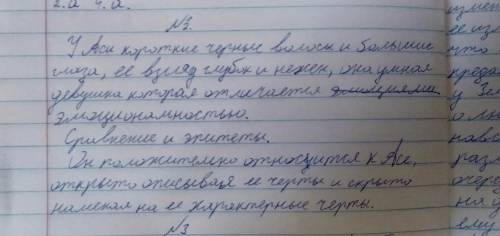 2.а 4.а.
№2.
У Аси короткие черные волосы и большие
глаза, ее взгляд глубок и нежен, она умная
девушка которая отличается эмоциями
эмоциональностью.
Сравнение и эпитеты.
Он положительно относится к Асе,
открыто описывая ее черты и скрыто
намекая на ее характерные черты.
№3
что
у
на
ему